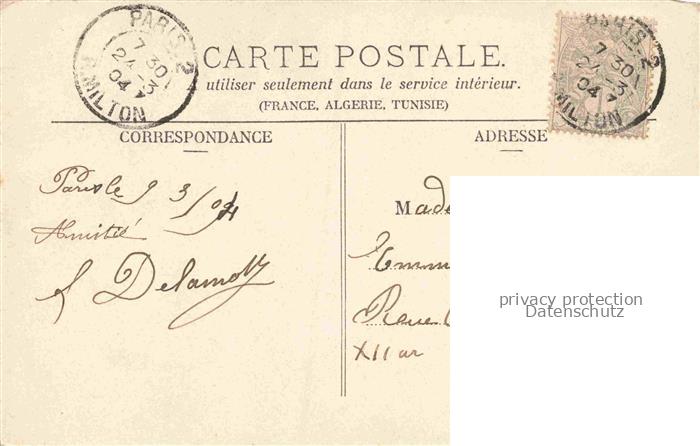 PARIS 2
7 30
24 3
04
R. MILTON
CARTE POSTALE.
utiliser seulement dans le service intérieur.
(FRANCE, ALGERIE, TUNISIE)
PARIS 2
7 30
24 3
04
MILTON
CORRESPONDANCE
ADRESSE
Paris le 9 3/04
Amitié
Delamotz
Made
Emm
Rue
XII ar
privacy protection
Datenschutz